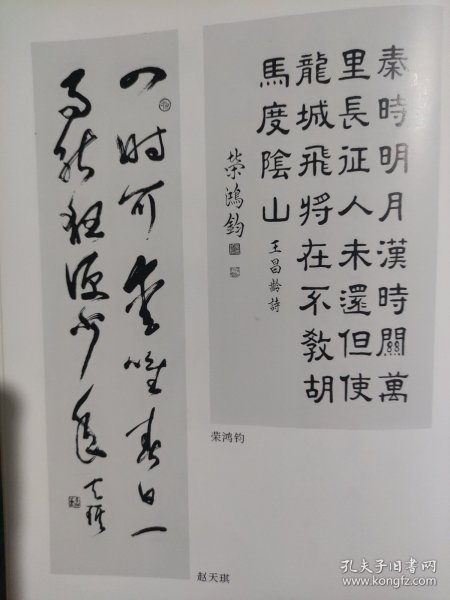 秦時明月漢時關萬
里長征人未還但使
龍城飛將在不教胡
馬度陰山
王昌齡詩
榮鴻鈞
荣鸿钧
四时可爱唯春日一
事能狂便少年
天琪
赵天琪
孔夫子旧书网
www.kongfz.com